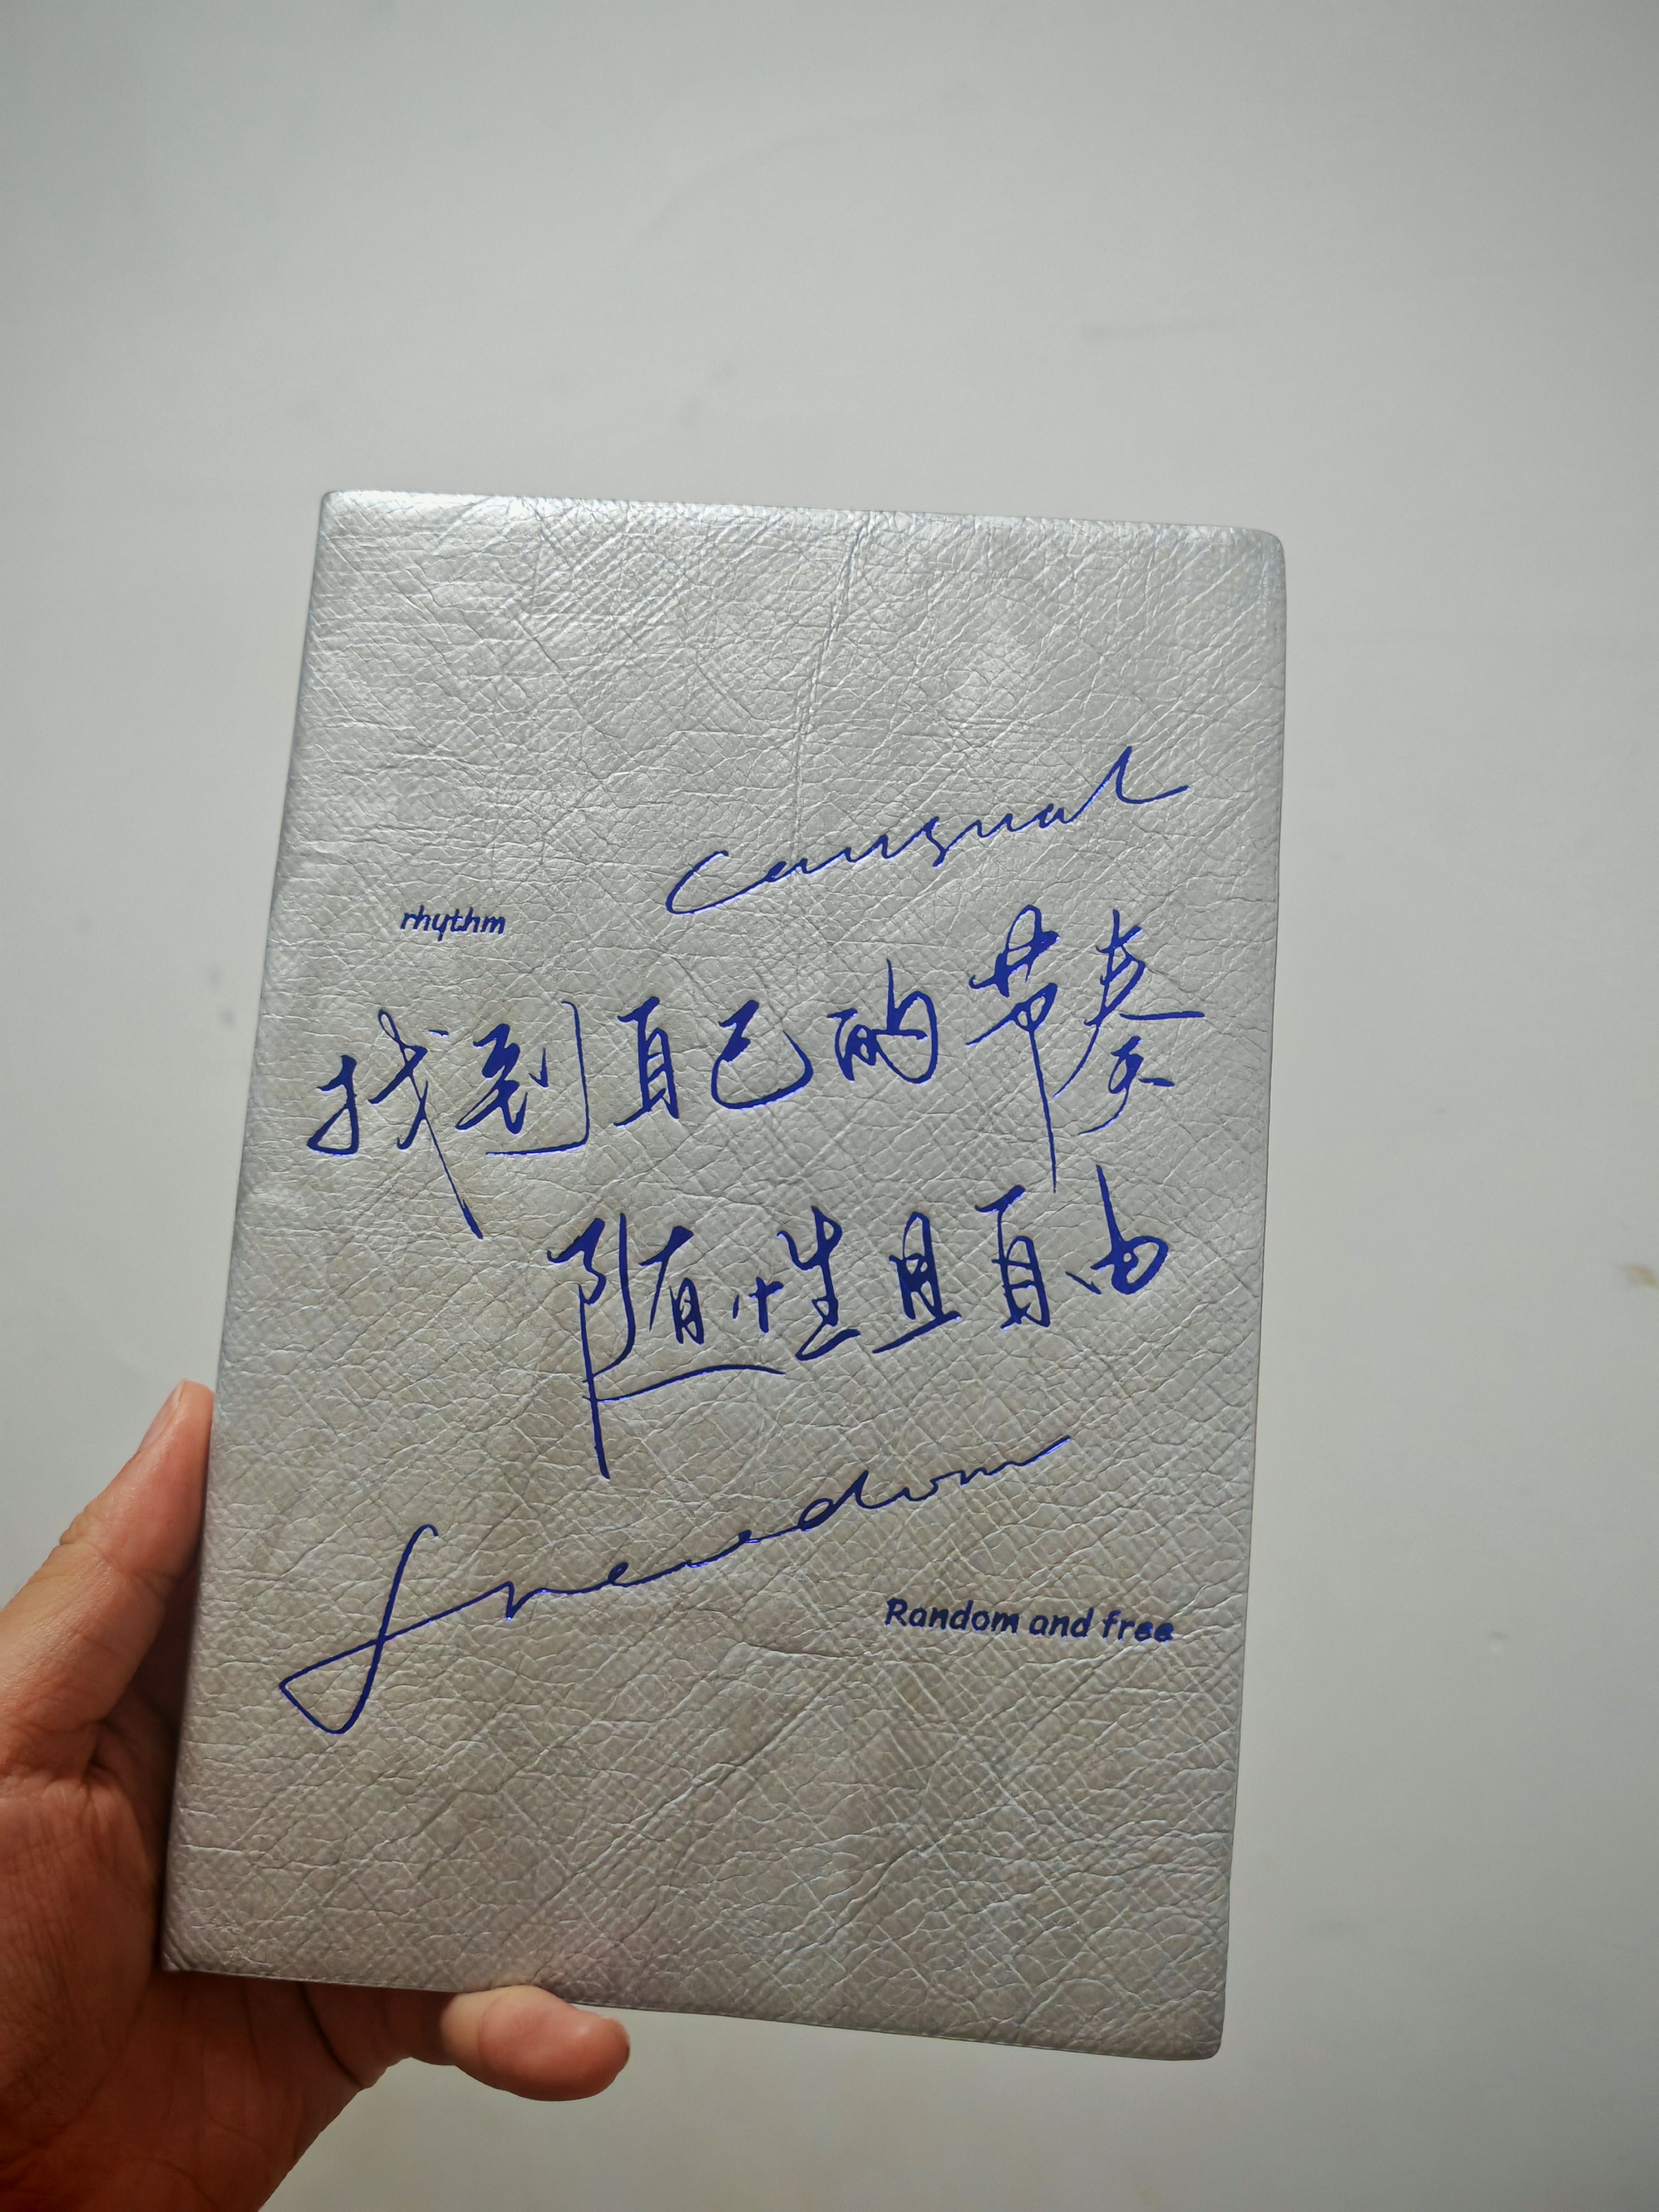 causual
rhythm
找到自己的节奏
随性且自由
freedom
Random and free